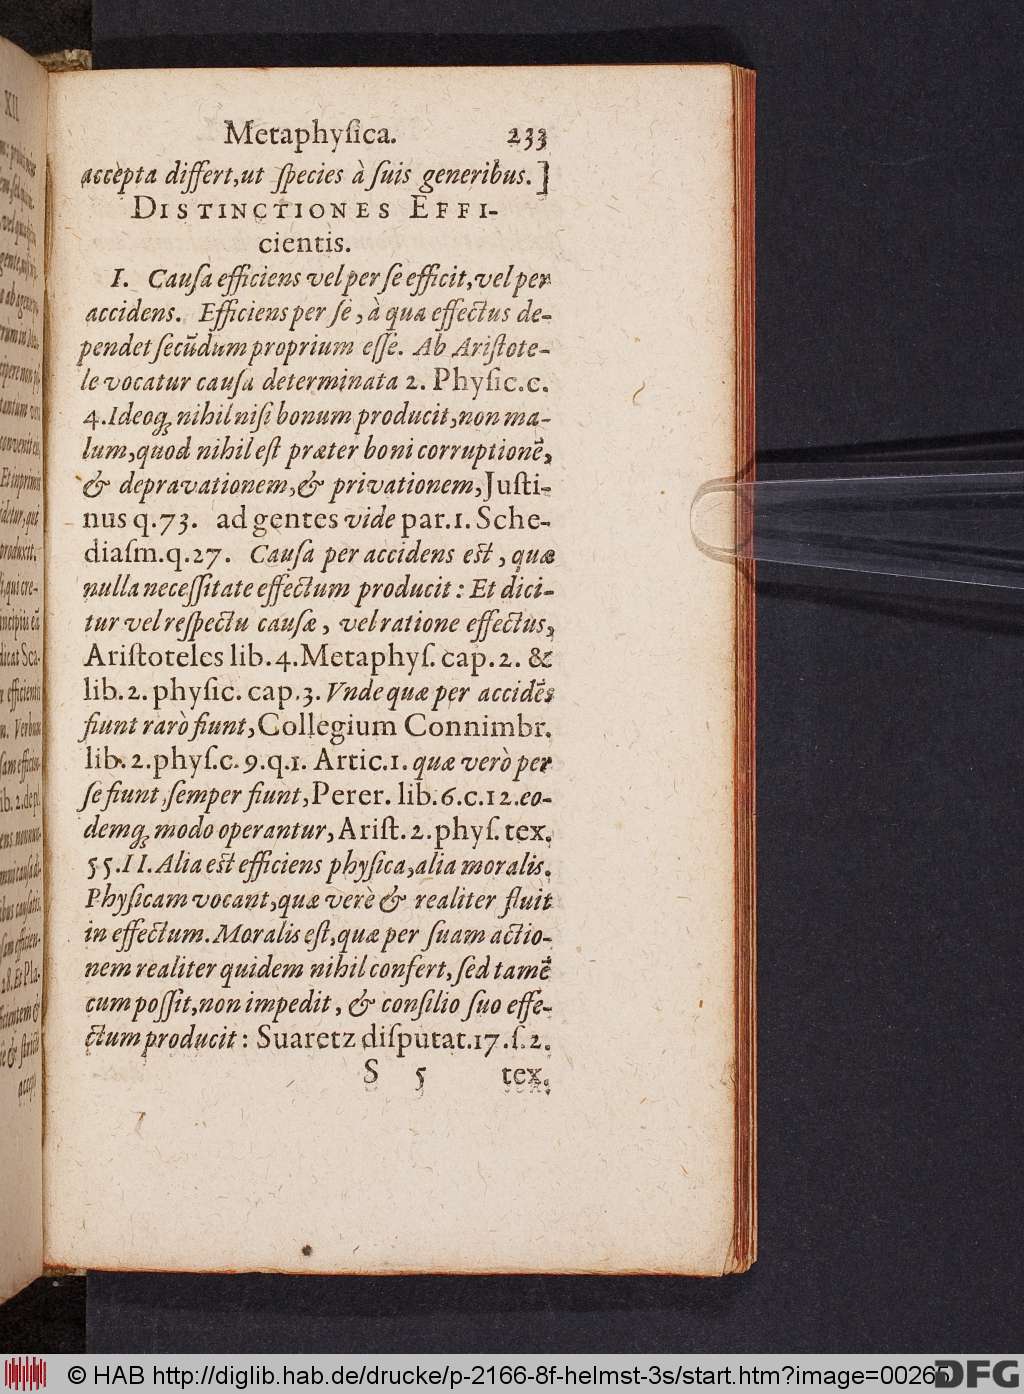 Metaphyſica. 233
accepta differt, ut ſpecies à ſuis generibus.]
DISTINCTIONES EFFI-
cientis.
I. Cauſa efficiens vel per ſe efficit, vel per
accidens. Efficiens per ſe, à qua effectus de-
pendet ſecūdum proprium eſſe. Ab Ariſtote-
le vocatur cauſa determinata 2. Phyſic. c.
4. Ideoq; nihil niſi bonum producit, non ma-
lum, quod nihil eſt præter boni corruptionē,
& depravationem, & privationem, Juſti-
nus q. 73. ad gentes vide par. 1. Sche-
diaſm. q. 27. Cauſa per accidens eſt, quæ
nulla neceſſitate effectum producit: Et dici-
tur vel reſpectu cauſæ, vel ratione effectus,
Ariſtoteles lib. 4. Metaphyſ. cap. 2. &
lib. 2. phyſic. cap. 3. Vnde quæ per accidēs
fiunt rarò fiunt, Collegium Connimbr.
lib. 2. phyſ. c. 9. q. 1. Artic. 1. quæ verò per
ſe fiunt, ſemper fiunt, Perer. lib. 6. c. 12. eo-
demq; modo operantur, Ariſt. 2. phyſ. tex.
55. II. Alia eſt efficiens phyſica, alia moralis.
Phyſicam vocant, quæ verè & realiter fluit
in effectum. Moralis eſt, quæ per ſuam actio-
nem realiter quidem nihil confert, ſed tamē
cum poſſit, non impedit, & conſilio ſuo effe-
ctum producit: Suaretz diſputat. 17. ſ. 2.
S 5 tex.
© HAB http://diglib.hab.de/drucke/p-2166-8f-helmst-3s/start.htm?image=00265
DFG